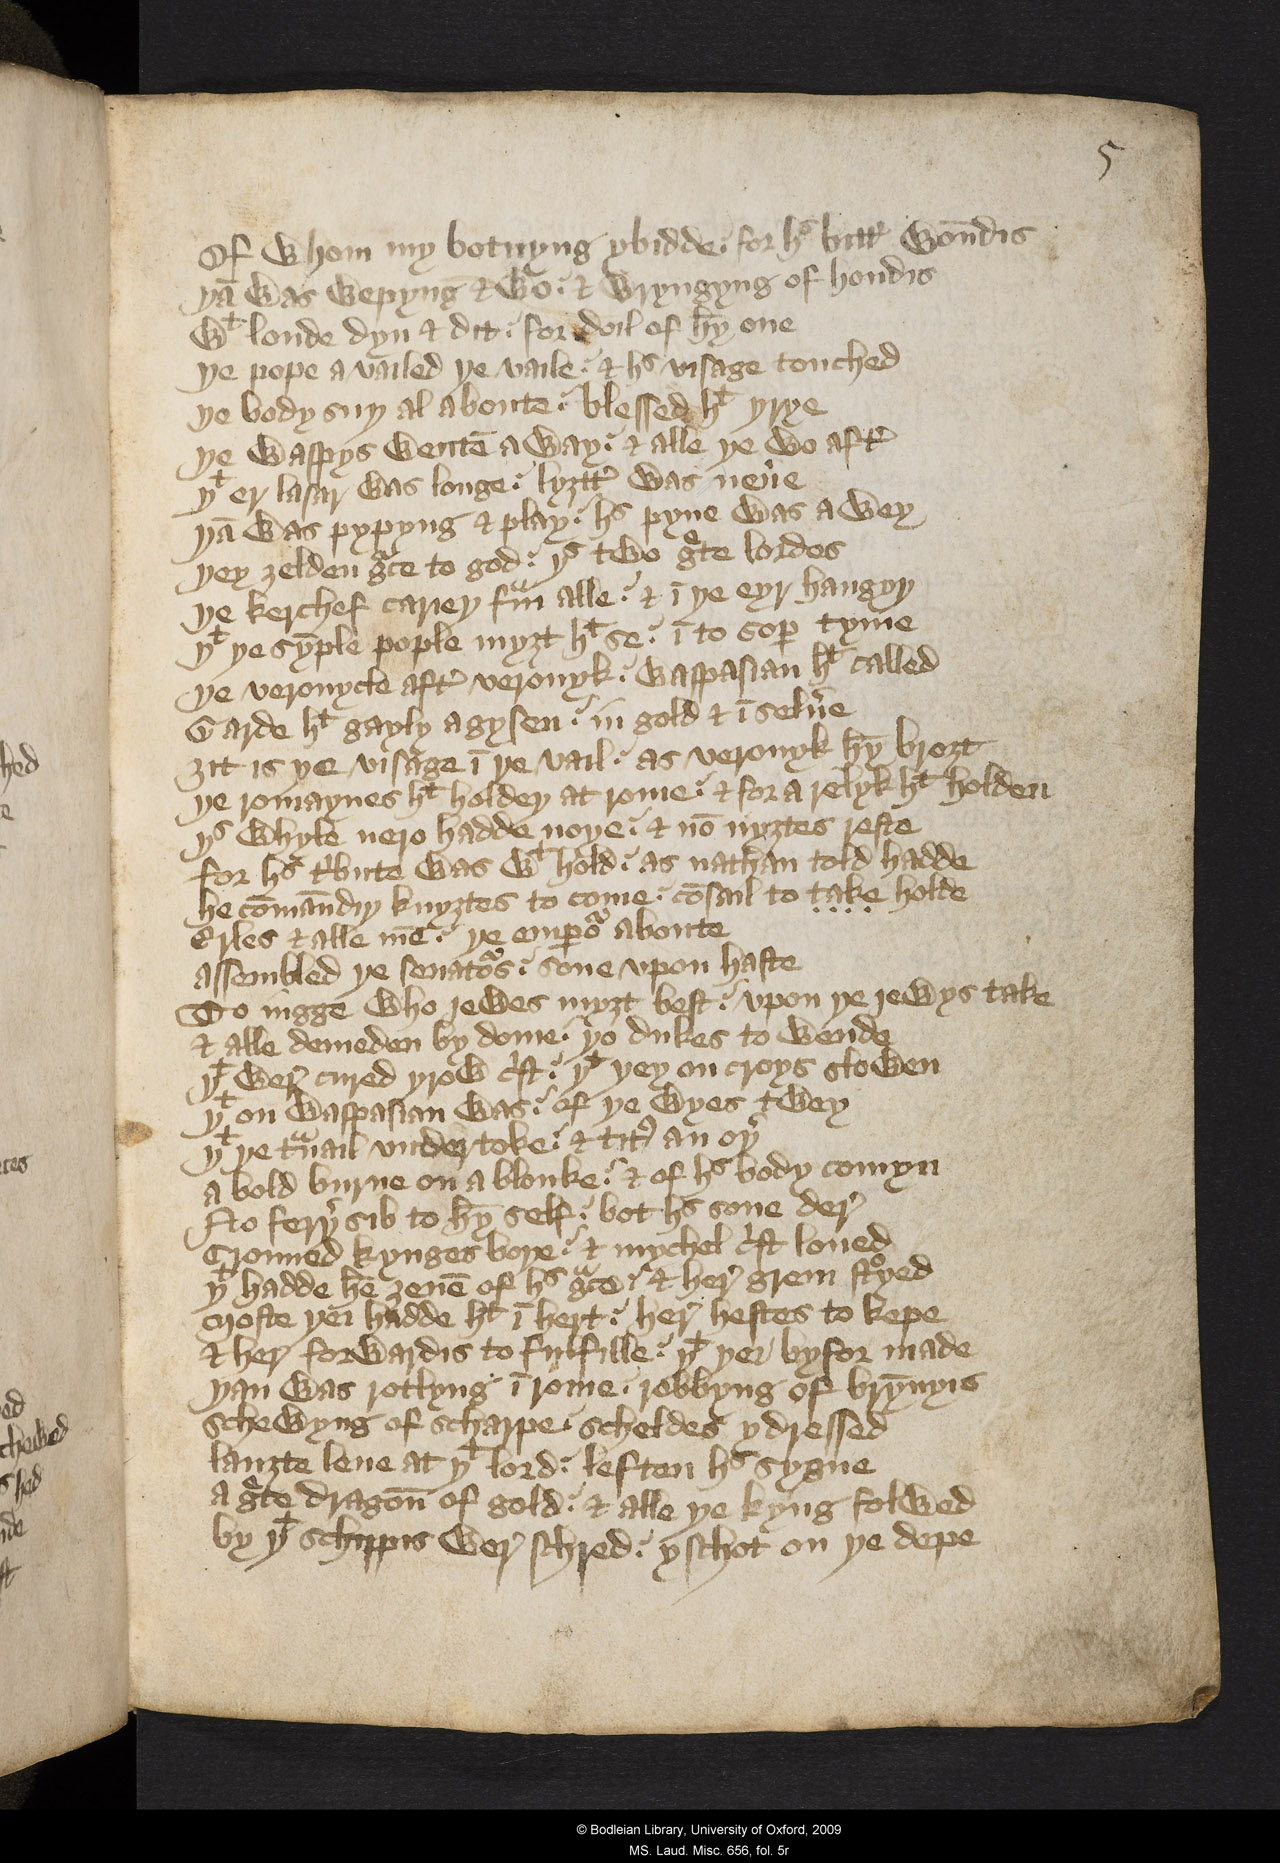 5
Of whom my botnyng ybidde : for hˢ bittʳ wōndis
yā was wepyng & wo : & wryngyng of hondis
wᵗ loude dyn & dit : for doil of hȳ one
ye pope availed ye vaile : & hˢ visage touched
ye body suy al aboute : blessed hᵗ yrye
ye waspys wentē away : & alle ye wo aftʳ
yᵗ er lasar was longe : lyȝttʳ was neuʳe
yā was pypyng & play : hˢ pyne was awey
yey ȝelden gᵃce to god : yˢ two gᵉte lordes
ye kerchef cariey fᵃm alle : & ī ye eyr hangyy
yᵗ ye sȳple pople myȝt hᵗ se : ī to soper tyme
ye veronycle aftʳ veronyk : waspasian hᵗ called
Garde hᵗ gayly agysen : in gold & ī seluʳe
ȝit is ye visage ī ye vail : as veronyk hȳ broȝt
ye romaynes hᵗ holdey at rome : & for a relyk hᵗ holden
yˢ whyle nero hadde noye : & nō nyȝtes reste
for hˢ tⁱbute was wᵗ hold : as nathan told hadde
he cōmāndiy knyȝtes to come : cōsail to take holde
Erles & alle mē : ye emperoʳ aboute
assembled ye senatoʳs : sone vpon haste
To iugge who jewes myȝt best : vpon ye jewys take
& alle demeden by dome : yo dukes to wende
yᵗ werʳ cured yrow cⁱst : yᵗ yey on croys slowen
yᵗ on waspasian was : of ye wyes twey
yᵗ ye tᵃuail vndertoke : & titʳ an oyʳ
a bold burne on a blonke : & of hˢ body comyn
No feryʳ sib to hȳ self : bot hˢ sone derʳ
Crouned kynges boye : & mychel cⁱst loued
yᵗ hadde hē ȝeuē of hˢ gᵃce : & herʳ grem stᵒyed
Moste yei hadde hᵗ ī hert : herʳ hestes to kepe
& herʳ forwardis to fulfille : yᵗ yei byfor made
yan was rotlyng ī rome : robbyng of brȳnyis
schewyng of scharpe : scheldes ydressed
lauȝte leue at yᵗ lord : leften hˢ sygne
a gᵉte dragoun of gold : & alle ye kyng folwed
by yᵗ schippis werʳ schred : yschot on ye depe
© Bodleian Library, University of Oxford, 2009
MS. Laud. Misc. 656, fol. 5r